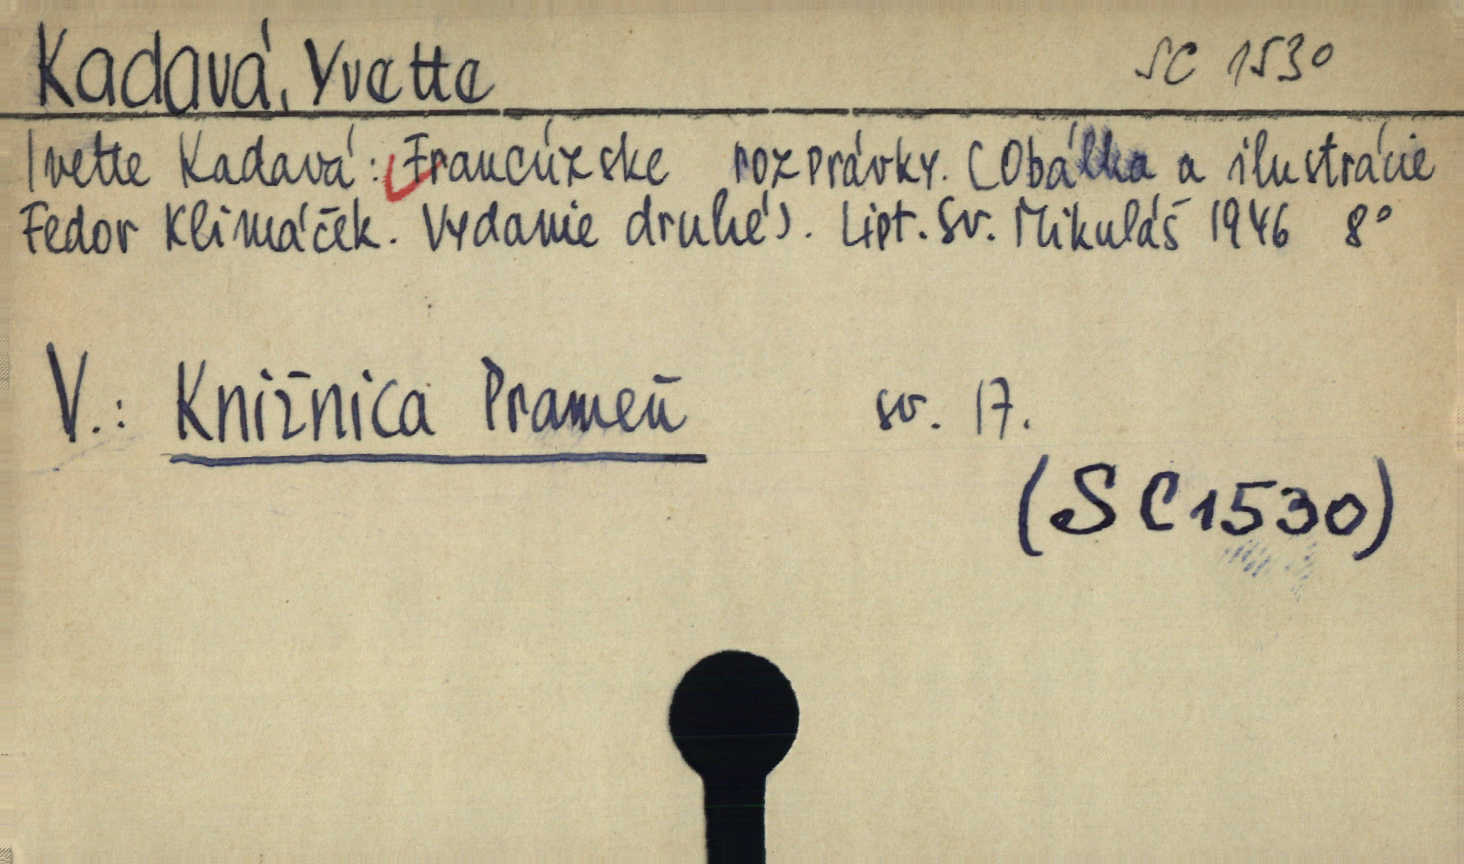 Kadavá, Yvette SC 1530
Ivette Kadavá: Francúzske rozprávky. (Obálka a ilustrácie
Fedor Klimáček. Vydanie druhé). Lipt. Sv. Mikuláš 1946 8°
V.: Knižnica Prameň sv. 17.
(SC 1530)